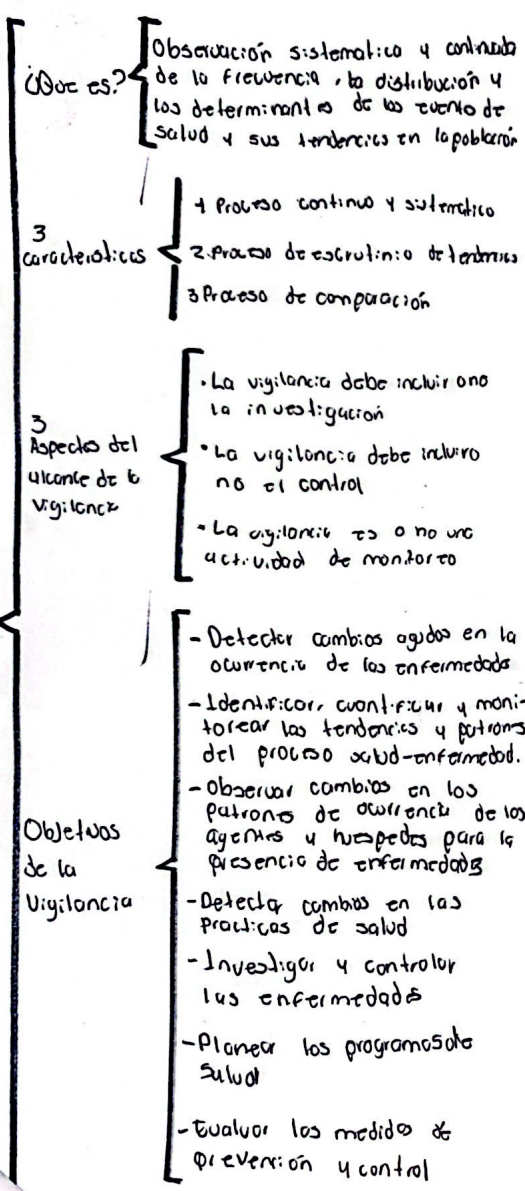 ¿Que es?
Observación sistematica y continuada
de la frecuencia, la distribución y
los determinantes de los evento de
salud y sus tendencias en la población
3
caracteristicas
1 Proceso continuo y sistematico
2. Proceso de escrutinio de tendencias
3 Proceso de comparación
3
Aspectos del
alcance de la
vigilancia
• La vigilancia debe incluir o no
la investigación
• La vigilancia debe incluir o
no el control
• La vigilancia es o no una
actividad de monitoreo
Objetivos
de la
Vigilancia
- Detectar cambios agudos en la
ocurrencia de las enfermedades
- Identificar, cuantificar y moni-
torear las tendencias y patrones
del proceso salud-enfermedad.
- Observar cambios en los
patrones de ocurrencia de los
agentes y huespedes para la
presencia de enfermedades
- Detectar cambios en las
practicas de salud
- Investigar y controlar
las enfermedades
- Planear los programas de
Salud
- Evaluar los medidas de
prevención y control